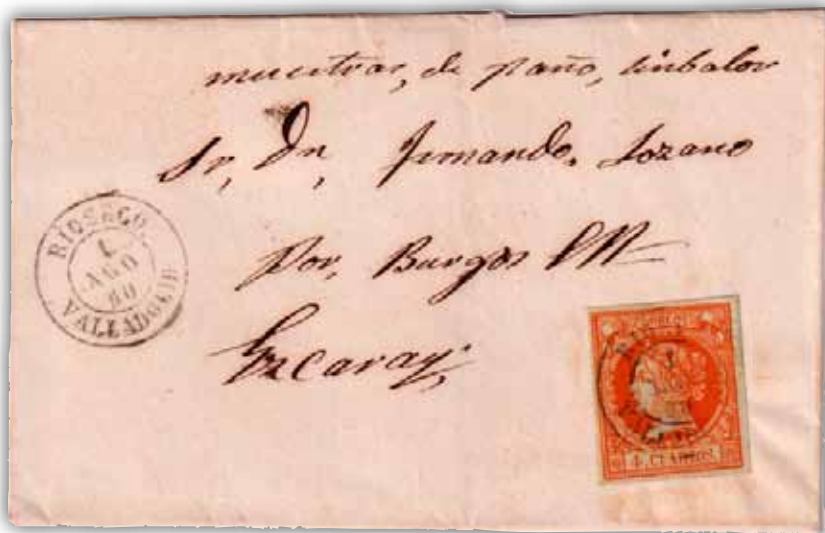 muestras, de paño, sinbalor
Sr, Dn, Fernando, Lozano
Por, Burgos
Ezcaray,
RIOSECO.
1
AGO
60
VALLADOLID
4 CUARTOS